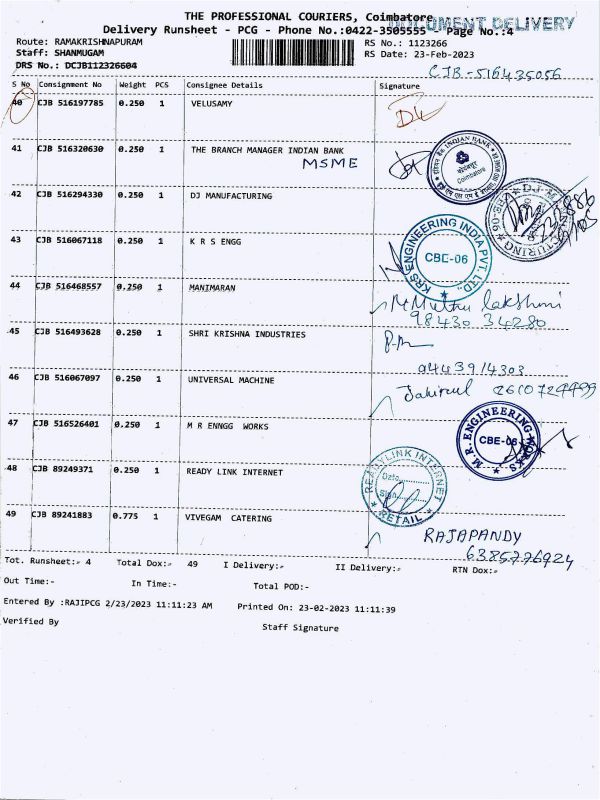 THE PROFESSIONAL COURIERS, Coimbatore
DOCUMENT DELIVERY
Delivery Runsheet - PCG - Phone No.:0422-3505555 Page No.:4
Route: RAMAKRISHNAPURAM RS No.: 1123266
Staff: SHANMUGAM RS Date: 23-Feb-2023
DRS No.: DCJB112326604
CJB-516435056
S No Consignment No Weight PCS Consignee Details Signature
40 CJB 516197785 0.250 1 VELUSAMY
41 CJB 516320630 0.250 1 THE BRANCH MANAGER INDIAN BANK
MSME
INDIAN BANK
Coimbatore
42 CJB 516294330 0.250 1 DJ MANUFACTURING
43 CJB 516067118 0.250 1 K R S ENGG
KRS ENGINEERING INDIA PVT. LTD.
CBE-06
44 CJB 516468557 0.250 1 MANIMARAN
M. Muthu lakshmi
98430 34280
45 CJB 516493628 0.250 1 SHRI KRISHNA INDUSTRIES
9443914303
46 CJB 516067097 0.250 1 UNIVERSAL MACHINE
47 CJB 516526401 0.250 1 M R ENNGG WORKS
M.R. ENGINEERING WORKS
CBE-06
48 CJB 89249371 0.250 1 READY LINK INTERNET
READY LINK INTERNET
Date
Sign
RETAIL
49 CJB 89241883 0.775 1 VIVEGAM CATERING
RAJAPANDY
6385776924
Tot. Runsheet:- 4 Total Dox:- 49 I Delivery:- II Delivery:- RTN Dox:-
Out Time:- In Time:- Total POD:-
Entered By :RAJIPCG 2/23/2023 11:11:23 AM Printed On: 23-02-2023 11:11:39
Verified By Staff Signature